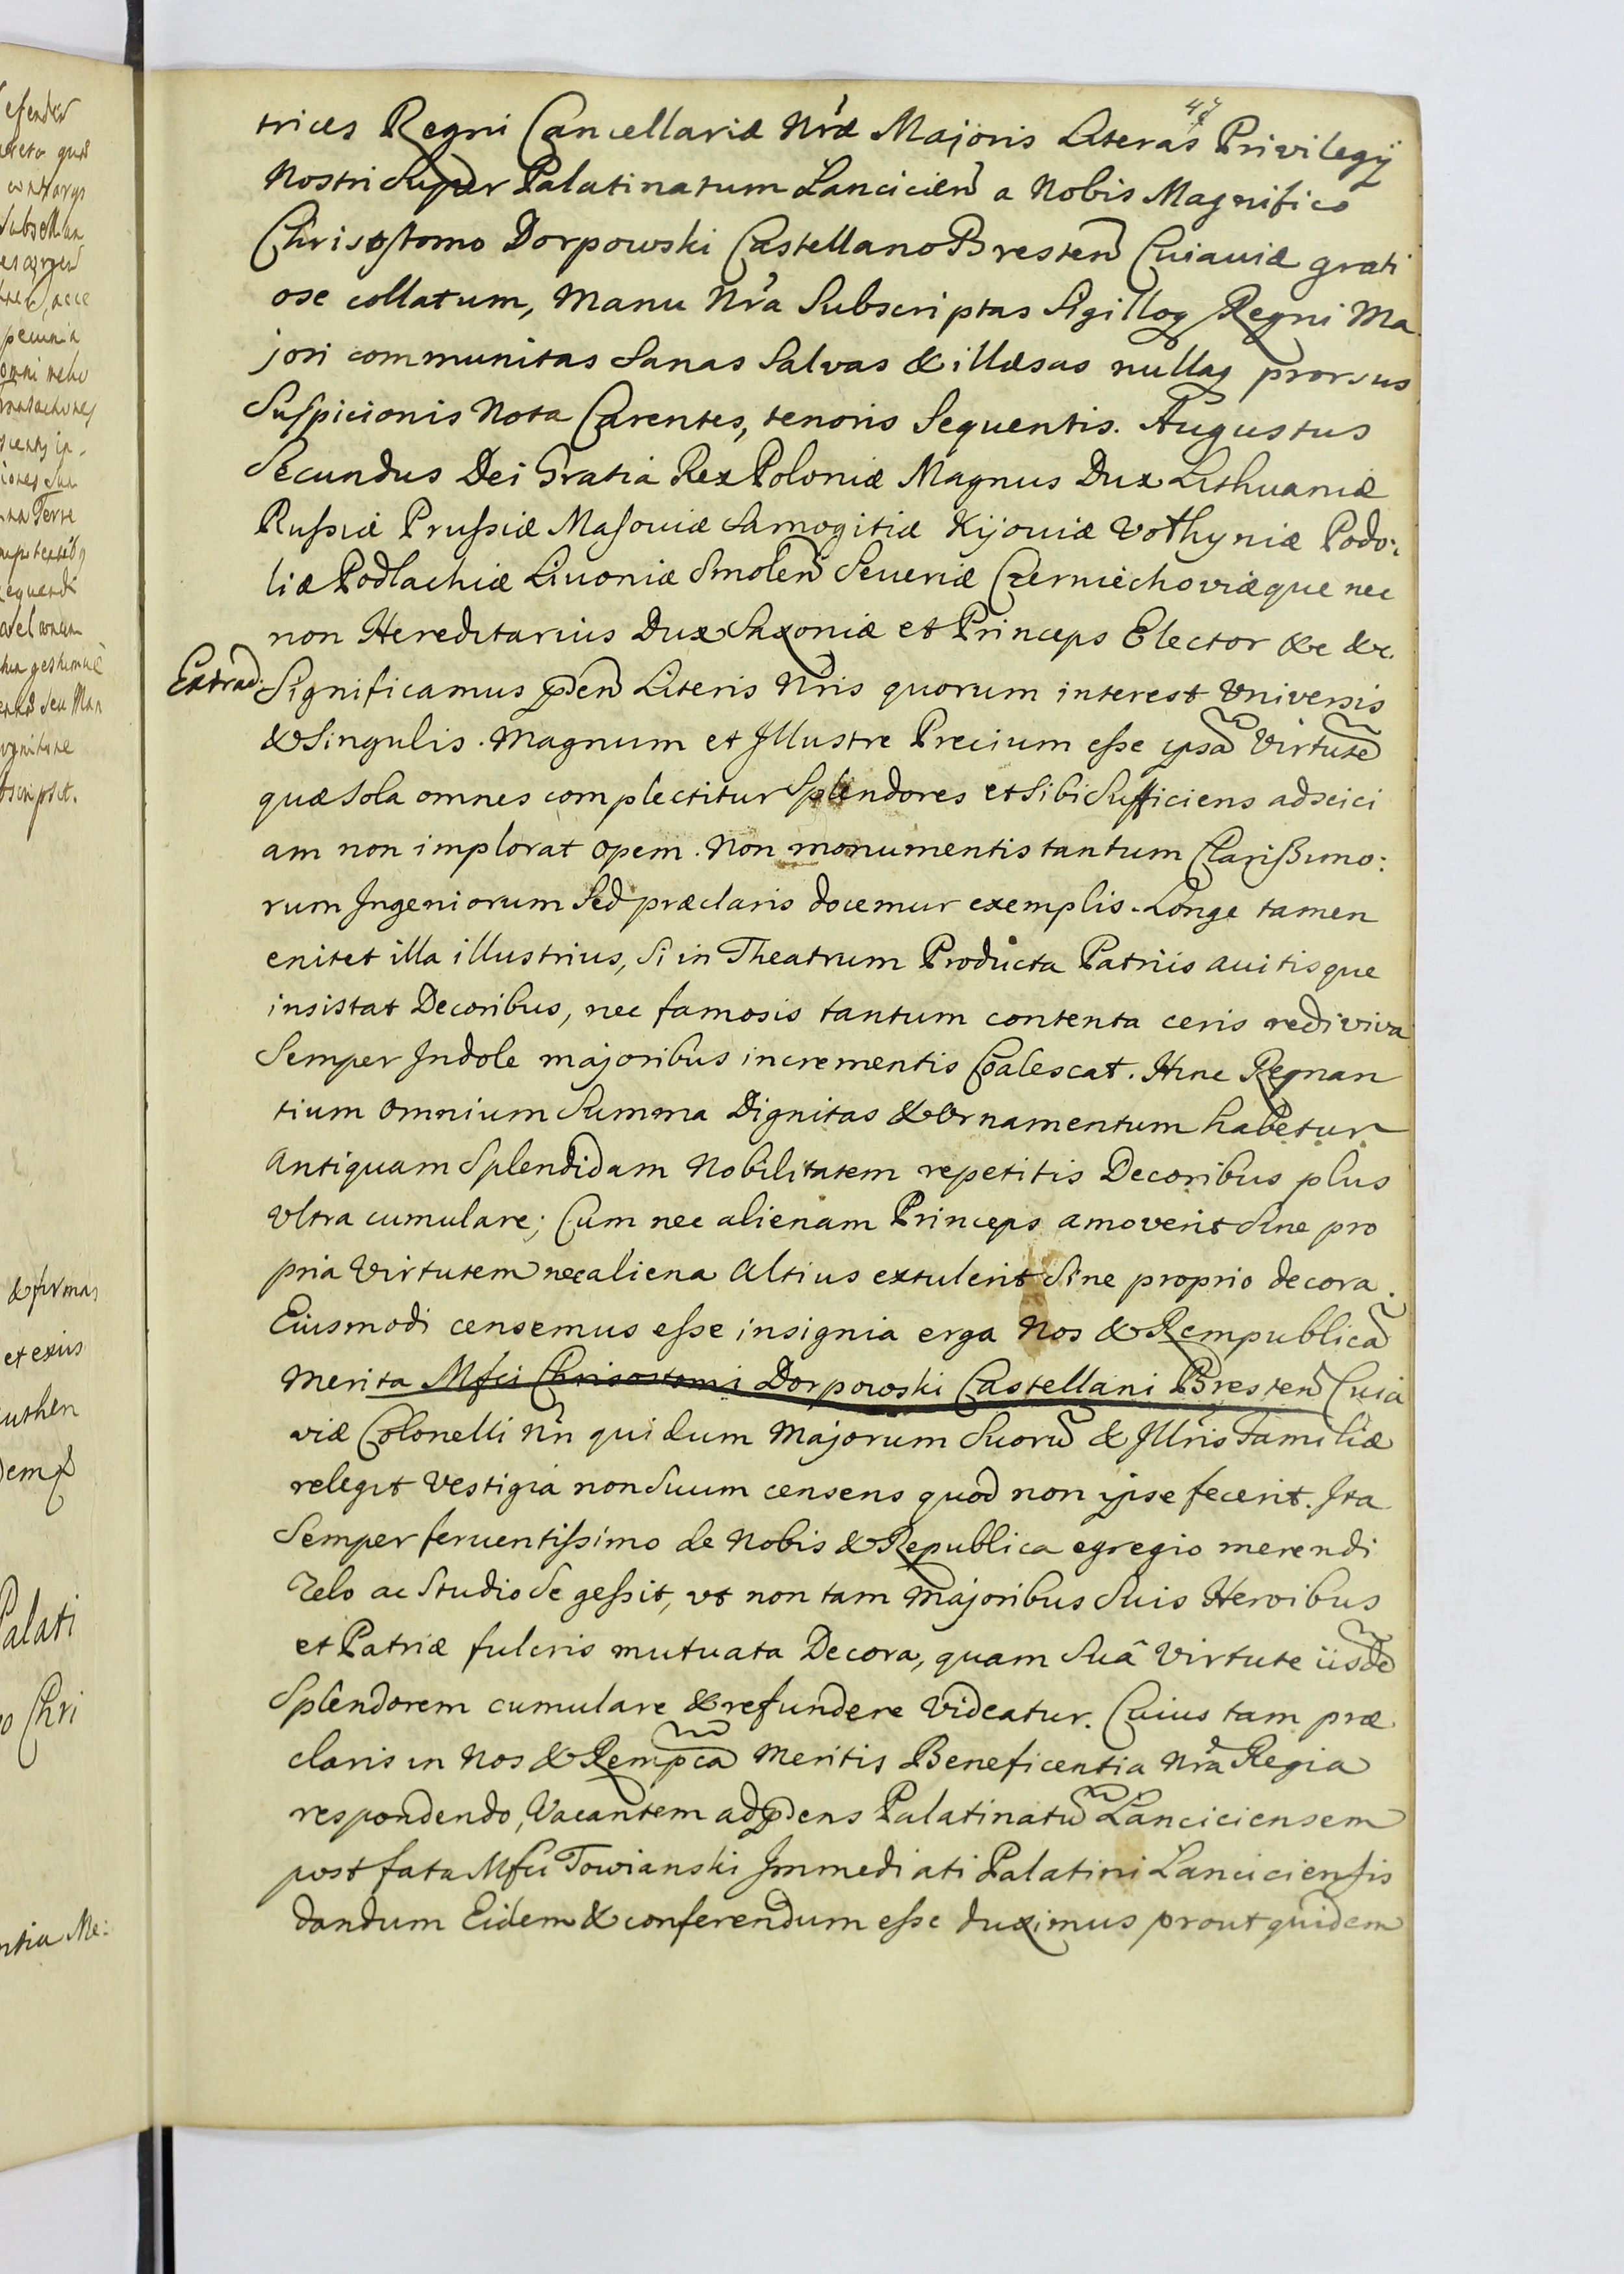 47
trices Regni Cancellariæ Nræ Majoris Literas Privilegÿ
Nostri Super Palatinatum Lancicien a Nobis Magnifico
Chrisostomo Dorpowski Castellano Bresten Cuiauiæ grati
ose collatum, Manu Nra Subscriptas Sigilloq Regni Ma
jori communitas Sanas Salvas & illæsas nullaq prorsus
Suspicionis Nota Carentes, tenoris Sequentis. Augustus
Secundus Dei Gratia Rex Poloniæ Magnus Dux Lithuaniæ
Russiæ Prussiæ Masouiæ Samogitiæ Kijouiæ Volhyniæ Podo:
liæ Podlachiæ Liuoniæ Smolen Seueriæ Czerniechoviæque nec
non Hereditarius Dux Saxoniæ et Princeps Elector &c &c.
Extrad: Significamus pden Literis Nris quorum interest Vniversis
& Singulis. Magnum et Jllustre Precium esse ipsa Virtute
quæ sola omnes complectitur Splendores et Sibi Sufficiens adscici
am non implorat opem. Non monumentis tantum Clarissimo:
rum Jngeniorum Sed præclaris docemur exemplis. Longe tamen
enitet illa illustrius, Si in Theatrum Producta Patriis auitisque
insistat Decoribus, nec famosis tantum contenta ceris rediviva
Semper Jndole majoribus incrementis Coalescat. Hinc Regnan
tium omnium Summa Dignitas & Ornamentum habetur
Antiquam Splendidam Nobilitatem repetitis Decoribus plus
Vltra cumulare; Cum nec alienam Princeps amoverit Sine pro
pria Virtutem nec aliena Altius extulerit Sine proprio decora.
Eiusmodi censemus esse insignia erga Nos & Rempublica
Merita Mfci Chrisostomi Dorpowski Castellani Bresten Cuia
viæ Colonelli Nri qui dum Majorum Suoru & Jllris Familiæ
relegit Vestigia non Suum censens quod non ipse fecerit. Jta
Semper feruentissimo de Nobis & Republica egregio merendi
Zelo ac Studio Se gessit, vt non tam Majoribus Suis Heroibus
et Patriæ fulcris mutuata Decora, quam Suâ Virtute iisde
Splendorem cumulare & refundere Videatur. Cuius tam præ
claris in Nos & Rempca Meritis Beneficentia Nra Regia
respondendo, Vacantem ad pdens Palatinatu Lanciciensem
post fata Mfci Towianski Jmmediati Palatini Lanciciensis
dandum Eidem & conferendum esse duximus prout quidem